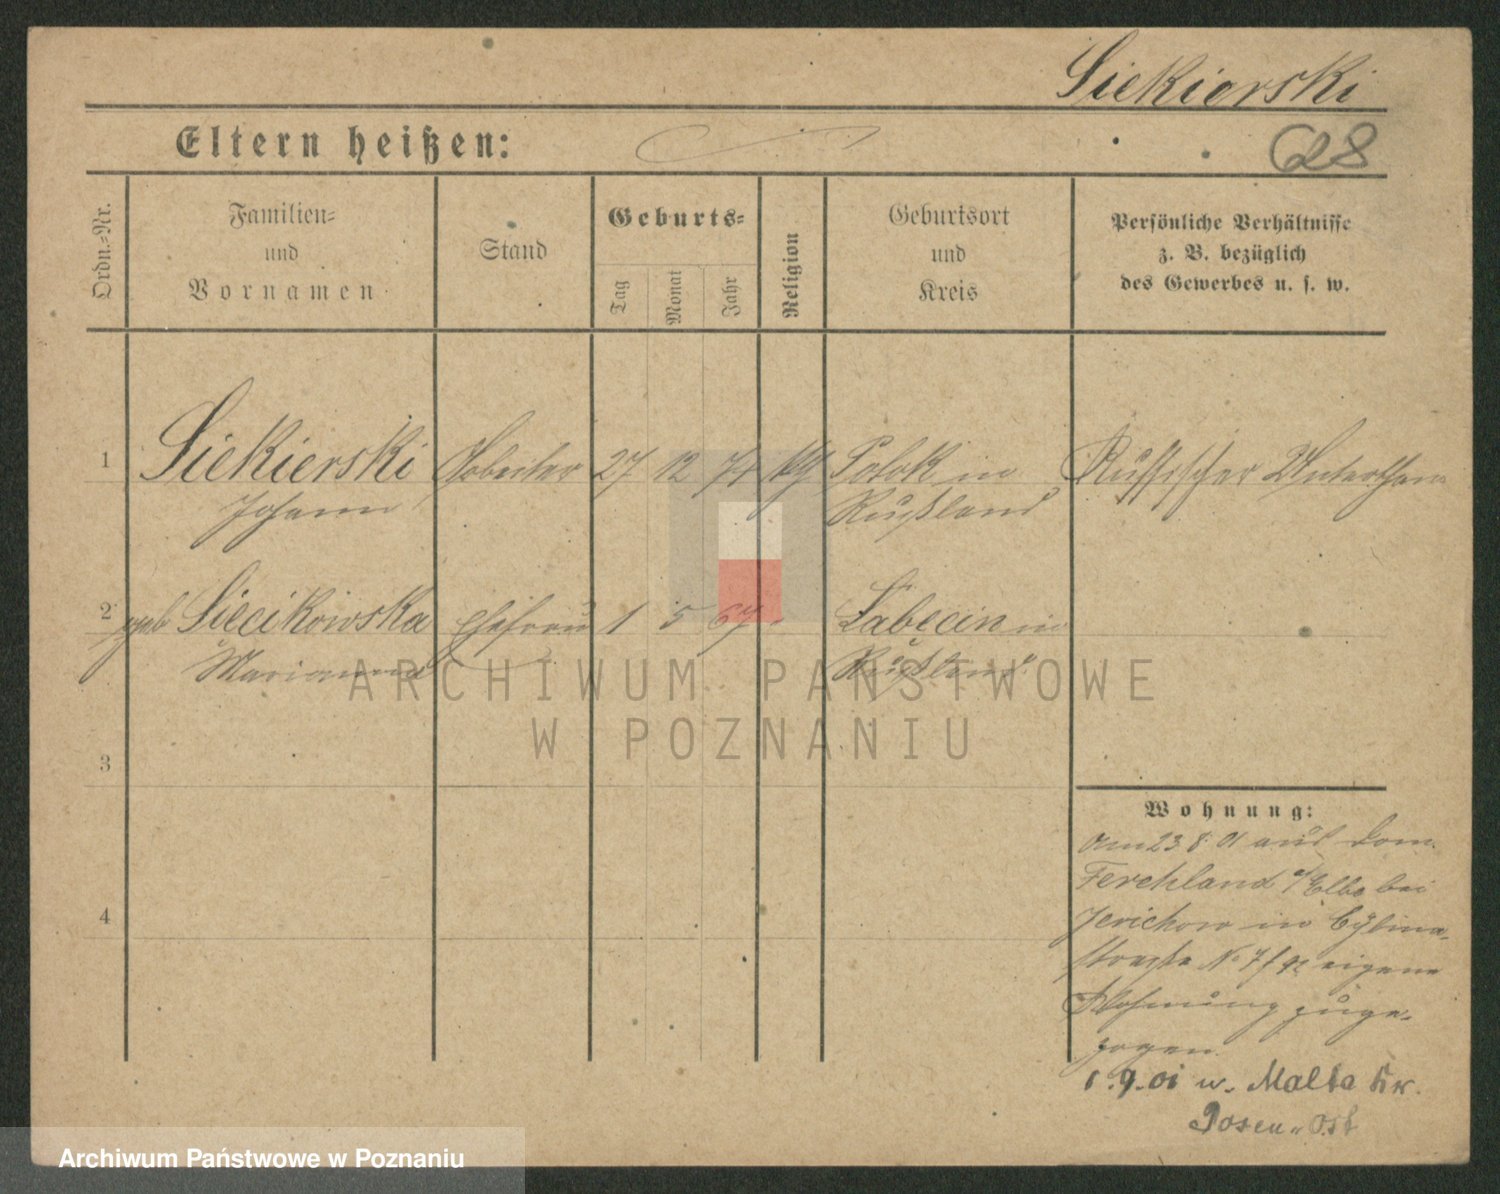 Siekierski
Eltern heißen:
628
Ordn.-Nr.
Familien-
und
Vornamen
Stand
Geburts-
Tag
Monat
Jahr
Religion
Geburtsort
und
Kreis
Persönliche Verhältnisse
z. B. bezüglich
des Gewerbes u. s. w.
1 Siekierski Arbeiter 27 12 74 Potok in Russischer Unterthan
Johann Rußland
2 geb Siecikowska Ehefrau 1 5 67 Łabęcin in
Marianna Rußland
ARCHIWUM PAŃSTWOWE
W POZNANIU
3
Wohnung:
am 23 8. 01 aus Dom.
Ferchland a/Elbe bei
4
Jerichow in
straße No 7 eigene
Wohnung zuge-
zogen.
1. 9. 01 n. Malta Kr.
Posen-Ost
Archiwum Państwowe w Poznaniu